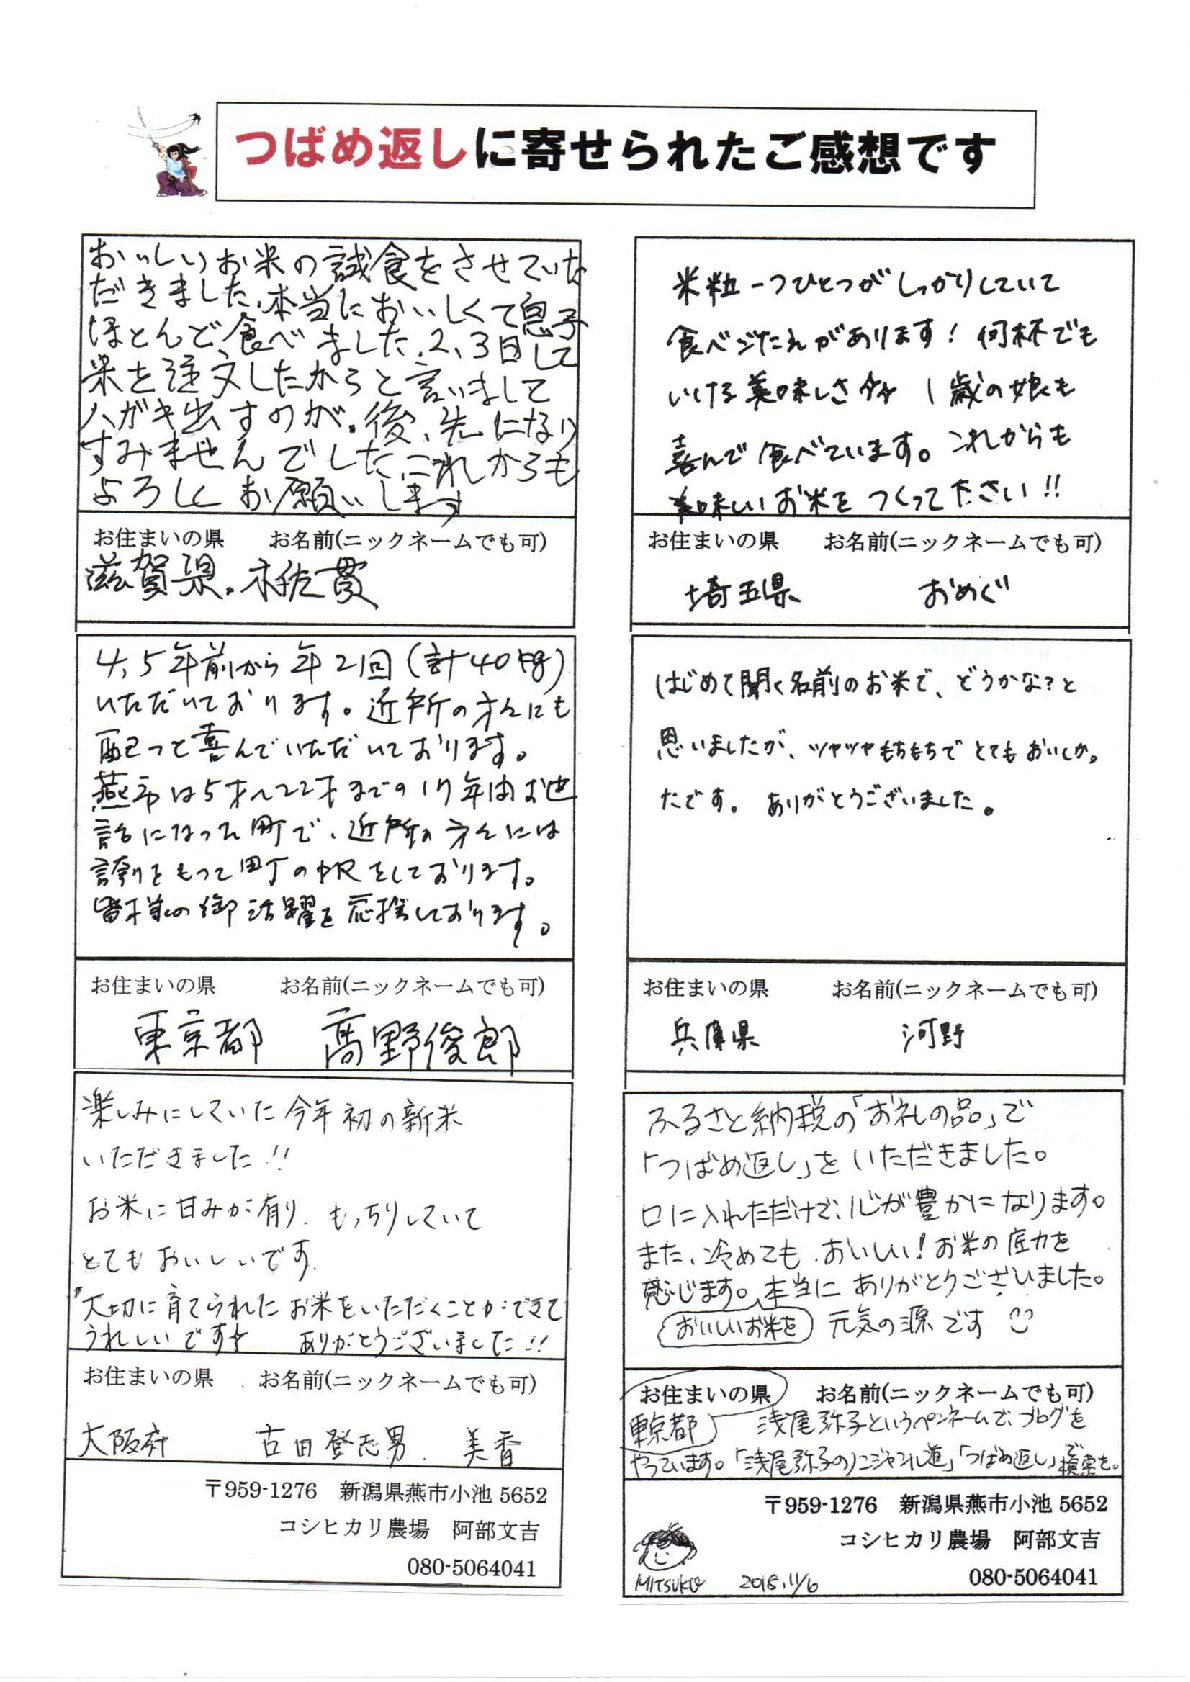 つばめ返しに寄せられたご感想です
おいしいお米の試食をさせていた
だきました、本当においしくて息子
ほとんど食べました、2、3日して
米を注文したからと言いまして
ハガキ出すのが、後、先になり
すみませんでしたこれからも
よろしくお願いします
お住まいの県 お名前(ニックネームでも可)
滋賀県
4,5年前から年2回(計40kg)
いただいております。近所の方々にも
配っと喜んでいただいております。
燕市は5才〜22才までの17年間お世
話になった町で、近所の方々には
誇りをもって町のPRをしております。
皆様の御活躍を応援しております。
お住まいの県 お名前(ニックネームでも可)
東京都 髙野俊郎
楽しみにしていた今年初の新米
いただきました!!
お米に甘みが有り、もっちりしていて
とてもおいしいです
大切に育てられたお米をいただくことができて
うれしいです☆ ありがとうございました!!
お住まいの県 お名前(ニックネームでも可)
大阪府 古田登志男. 美香
〒959-1276 新潟県燕市小池 5652
コシヒカリ農場 阿部文吉
080-5064041
米粒一つひとつがしっかりしていて
食べごたえがあります! 何杯でも
いける美味しさ☆☆ 1歳の娘も
喜んで食べています。これからも
美味しいお米をつくってください!!
お住まいの県 お名前(ニックネームでも可)
埼玉県 おめぐ
はじめて聞く名前のお米で、どうかな?と
思いましたが、ツヤツヤもちもちでとてもおいしかっ
たです。ありがとうございました。
お住まいの県 お名前(ニックネームでも可)
兵庫県 河野
ふるさと納税の「お礼の品」で
「つばめ返し」をいただきました。
口に入れただけで、心が豊かになります。
また、冷めてもおいしい!お米の底力を
感じます。本当にありがとうございました。
おいしいお米を 元気の源です
お住まいの県 お名前(ニックネームでも可)
東京都 浅尾弥子というペンネームで、ブログを
やっています。「浅尾弥子のノンジャンル道」「つばめ返し」で検索を。
〒959-1276 新潟県燕市小池 5652
コシヒカリ農場 阿部文吉
MITSUKO 2015.11/6 080-5064041